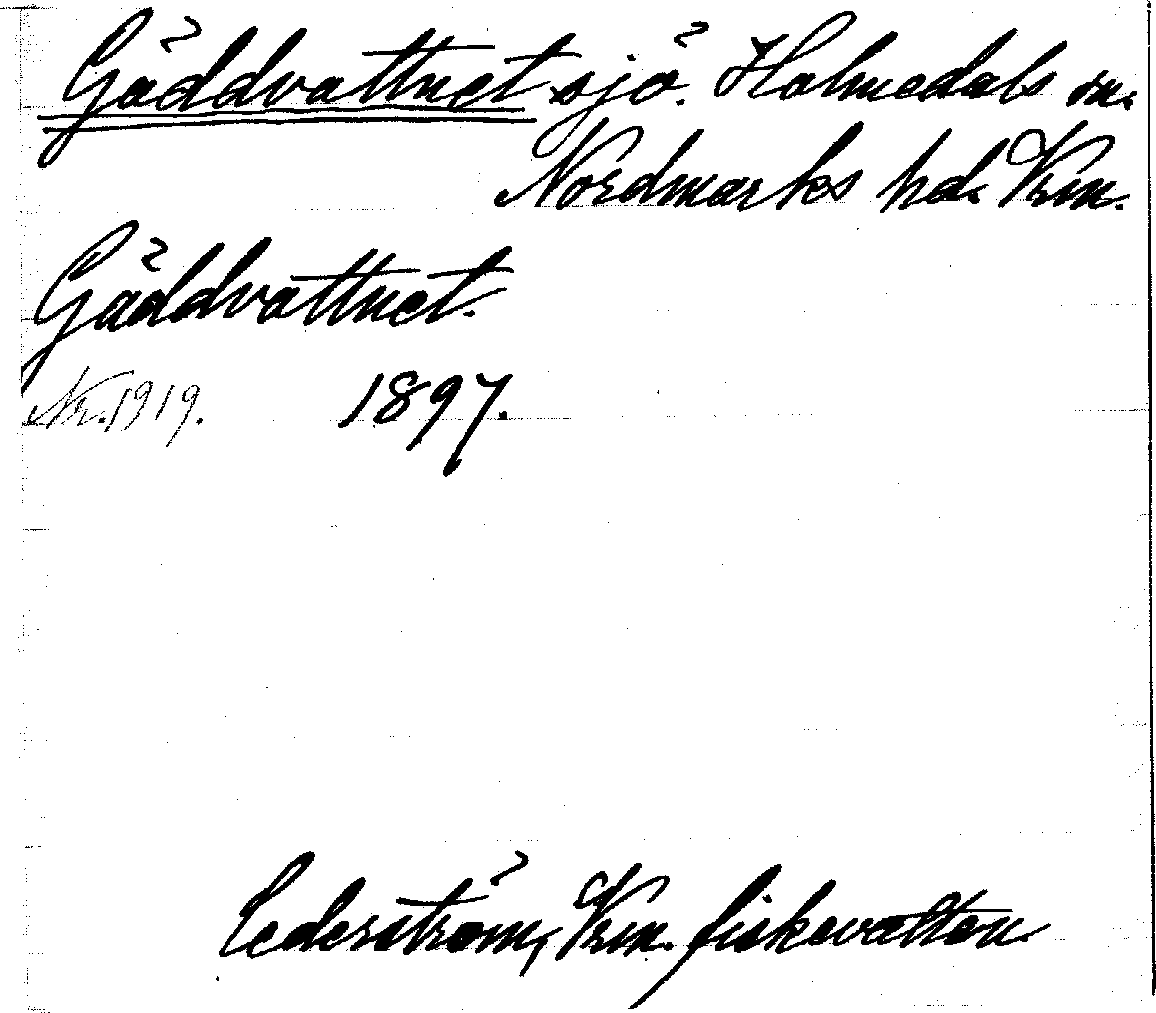 Gäddvattnet sjö. Holmedals sn.
Nordmarks hd. Vrm.
Gäddvattnet.
Nr. 1919. 1897.
Cederström, Vrm. fiskevatten.